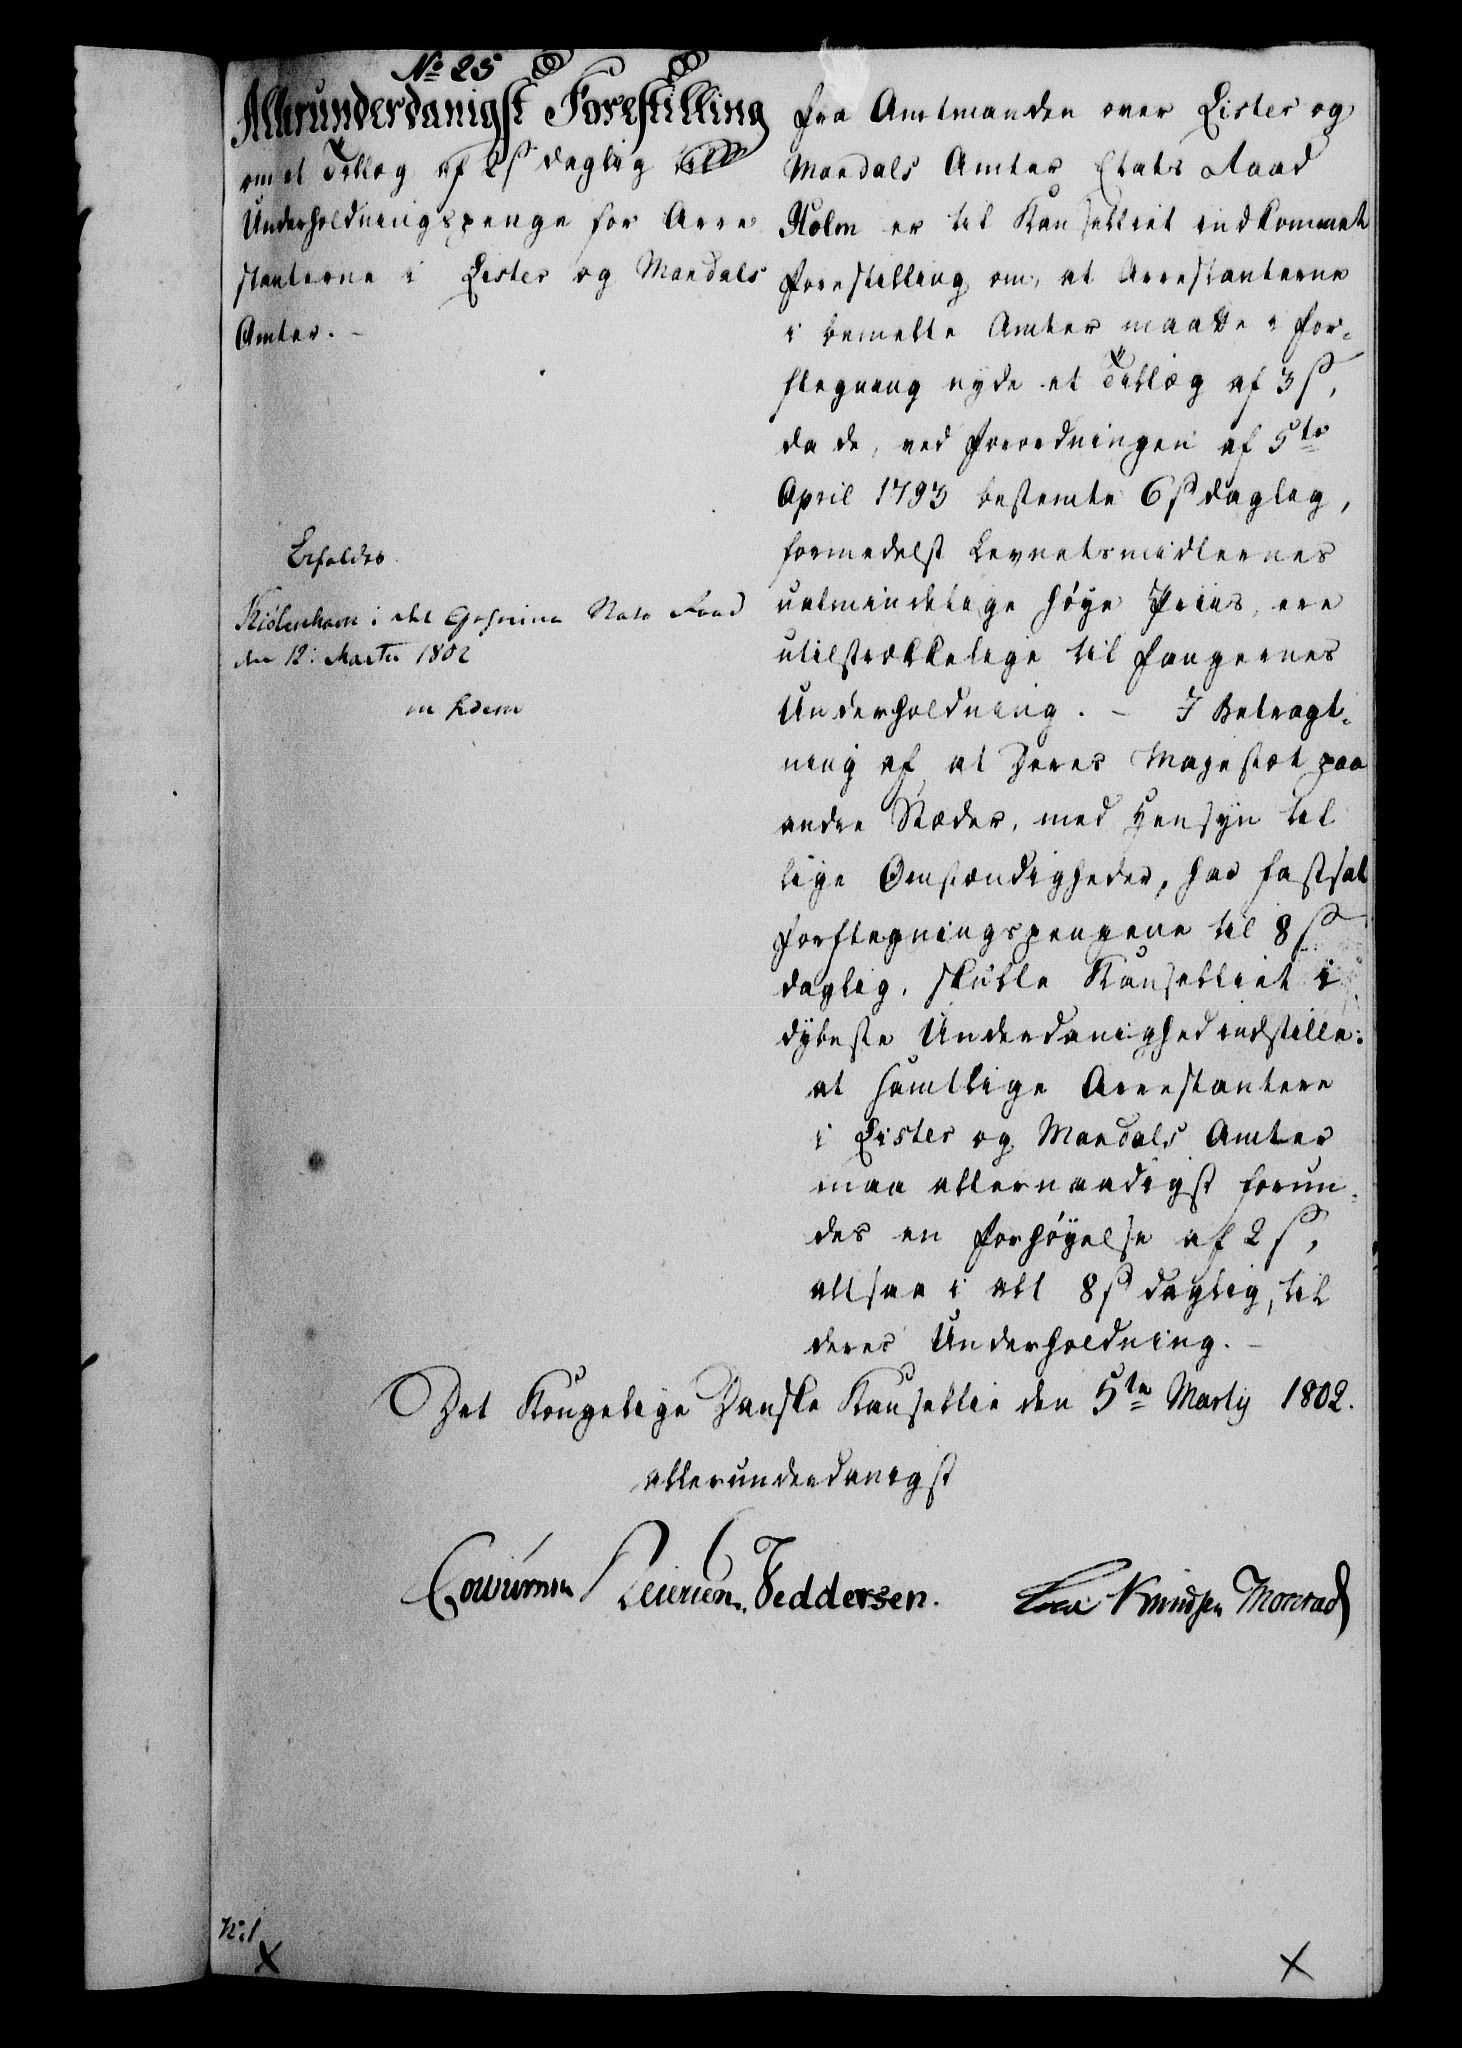 No 25
Allerunderdanigst Forestilling
om et Tillæg af 2 ß daglig til
Underholdningspenge for Arre
stanterne i Lister og Mandals
Amter. –
Erfoldes
Kiöbenhavn i det Geheime Stats Raad
den 12: Martii 1802
in fidem
Fra Amtmanden over Lister og
Mandals Amter Etats Raad
Holm er til Kanselliet indkommet
Forestilling om, at Arrestanterne
i bemelte Amter maatte i For-
flegning nyde et Tillæg af 3 ß,
da de, ved Forordningen af 5te
April 1793 bestemte 6 ß daglig,
formedelst Levnetsmidlernes
ualmindelige høye Priis, ere
utilstrækkelige til Fangernes
Underholdning. – I Betragt-
ning af, at Deres Majestæt paa
andre Stæder, med Hensyn til
lige Omstændigheder, har fastsat
Forflegningspengene til 8 ß
daglig, skulle Kanselliet i
dybeste Underdanighed indstille:
at samtlige Arrestantere
i Lister og Mandals Amter
maa allernaadigst forun-
des en Forhøyelse af 2 ß,
altsaa i alt 8 ß daglig, til
deres Underholdning. –
Det Kongelige Danske Kansellie den 5te Martij 1802.
allerunderdanigst
Feddersen. Knudsen Monrad
N: 1
X X